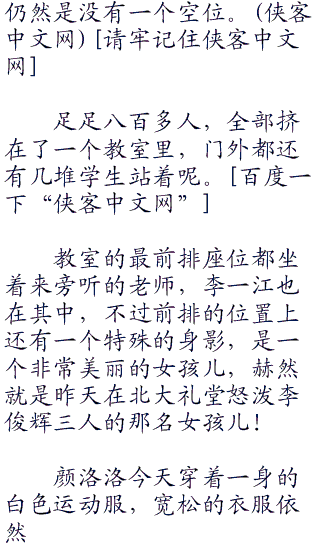 仍然是没有一个空位。(侠客
中文网) [请牢记住侠客中文
网]
足足八百多人，全部挤
在了一个教室里，门外都还
有几堆学生站着呢。[百度一
下“侠客中文网”]
教室的最前排座位都坐
着来旁听的老师，李一江也
在其中，不过前排的位置上
还有一个特殊的身影，是一
个非常美丽的女孩儿，赫然
就是昨天在北大礼堂怒泼李
俊辉三人的那名女孩儿！
颜洛洛今天穿着一身的
白色运动服，宽松的衣服依
然